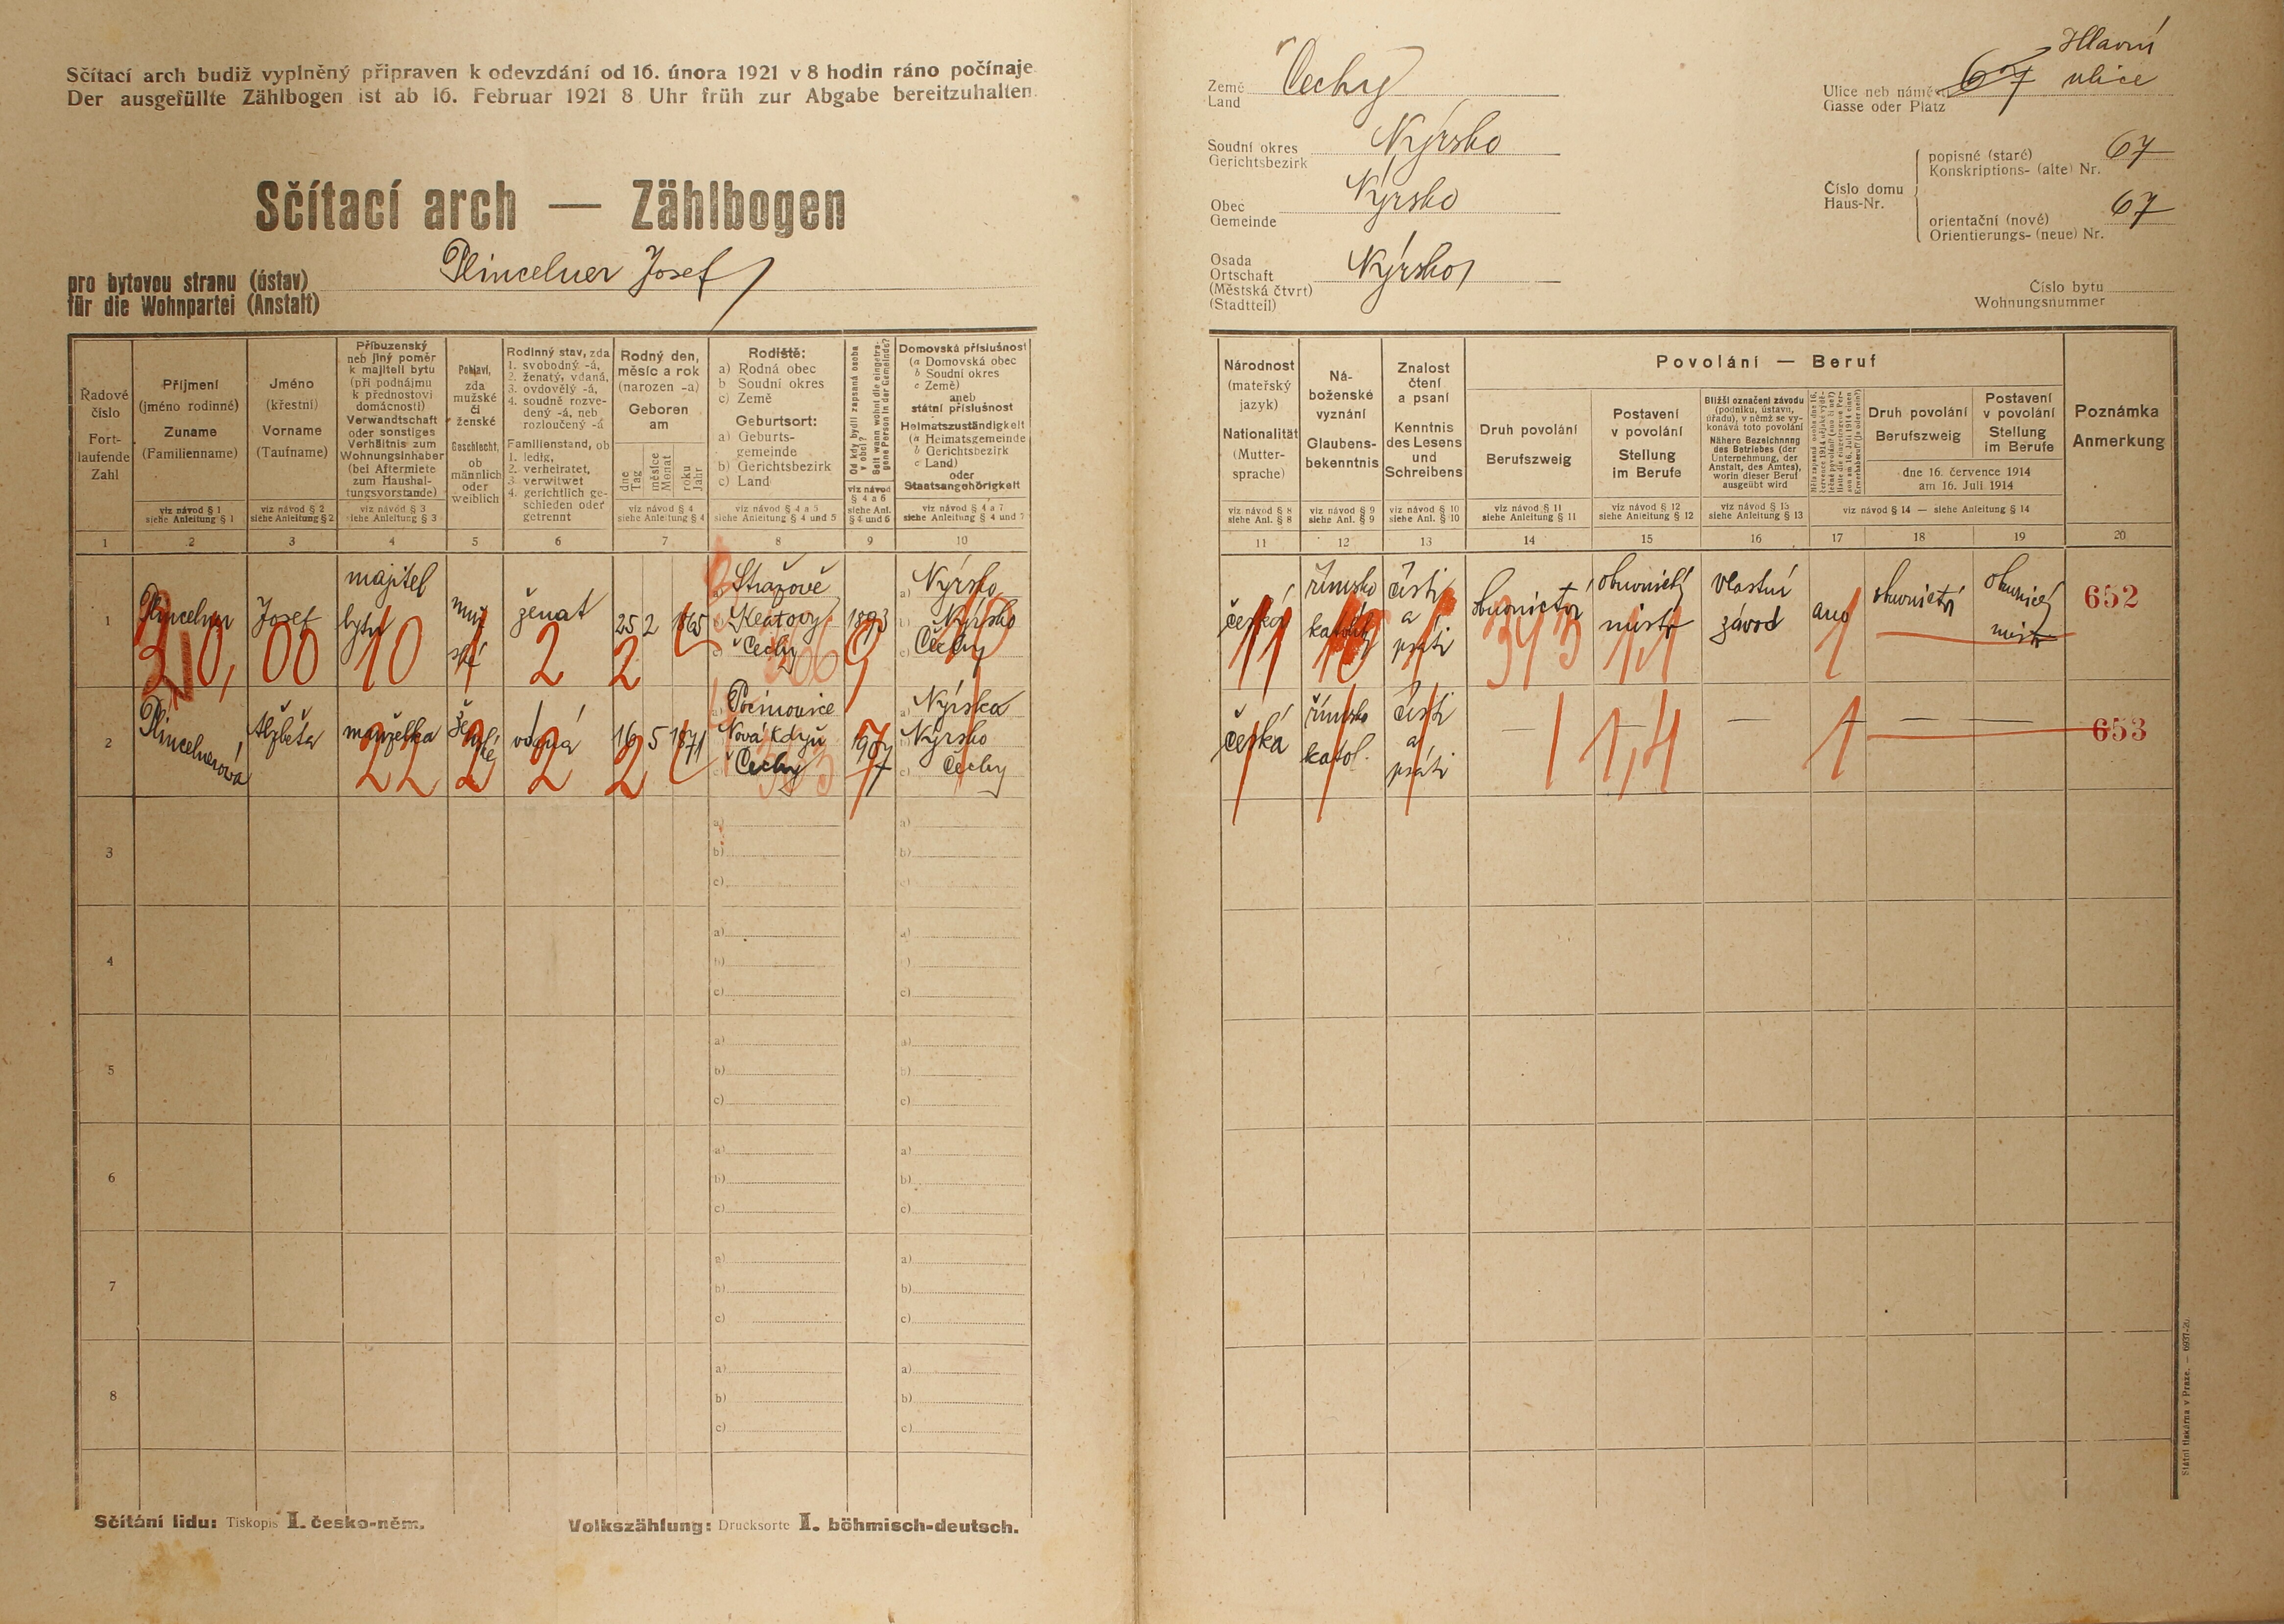 Sčítací arch budiž vyplněný připraven k odevzdání od 16. února 1921 v 8 hodin ráno počínaje.
Der ausgefüllte Zählbogen ist ab 16. Februar 1921 8 Uhr früh zur Abgabe bereitzuhalten.
Sčítací arch — Zählbogen
pro bytovou stranu (ústav)
für die Wohnpartei (Anstalt)
Plincelner Josef
Země Čechy
Land
Soudní okres Nýrsko
Gerichtsbezirk
Obec Nýrsko
Gemeinde
Osada
Ortschaft Nýrsko
(Městská čtvrt)
(Stadtteil)
Hlavní
Ulice neb náměstí 67 ulice
Gasse oder Platz
Číslo domu
Haus-Nr.
popisné (staré) 67
Konskriptions- (alte) Nr.
orientační (nové) 67
Orientierungs- (neue) Nr.
Číslo bytu
Wohnungsnummer
Řadové
číslo
Fort-
laufende
Zahl
1
Příjmení
(jméno rodinné)
Zuname
(Familienname)
viz návod § 1
siehe Anleitung § 1
2
Jméno
(křestní)
Vorname
(Taufname)
viz návod § 2
siehe Anleitung § 2
3
Příbuzenský
neb jiný poměr
k majiteli bytu
(při podnájmu
k přednostovi
domácnosti)
Verwandtschaft
oder sonstiges
Verhältnis zum
Wohnungsinhaber
(bei Aftermiete
zum Haushal-
tungsvorstande)
viz návod § 3
siehe Anleitung § 3
4
Pohlaví,
zda
mužské
či
ženské
Geschlecht,
ob
männlich
oder
weiblich
5
Rodinný stav, zda
1. svobodný -á,
2. ženatý, vdaná,
3. ovdovělý -á,
4. soudně rozve-
dený -á, neb
rozloučený -á
Familienstand, ob
1. ledig,
2. verheiratet,
3. verwitwet
4. gerichtlich ge-
schieden oder
getrennt
6
Rodný den,
měsíc a rok
(narozen -a)
Geboren
am
dne
Tag
měsíce
Monat
roku
Jahr
viz návod § 4
siehe Anleitung § 4
7
Rodiště:
a) Rodná obec
b Soudní okres
c) Země
Geburtsort:
a) Geburts-
gemeinde
b) Gerichtsbezirk
c) Land
viz návod § 4 a 5
siehe Anleitung § 4 und 5
8
Od kdy bydlí zapsaná osoba
v obci?
Seit wann wohnt die eingetra-
gene Person in der Gemeinde?
viz návod
§ 4 a 6
siehe Anl.
§ 4 und 6
9
Domovská příslušnost
(a Domovská obec
b Soudní okres
c Země)
aneb
státní příslušnost
Heimatszuständigkeit
(a Heimatsgemeinde
b Gerichtsbezirk
c Land)
oder
Staatsangehörigkeit
viz návod § 4 a 7
siehe Anleitung § 4 und 7
10
Národnost
(mateřský
jazyk)
Nationalität
(Mutter-
sprache)
viz návod § 8
siehe Anl. § 8
11
Ná-
boženské
vyznání
Glaubens-
bekenntnis
viz návod § 9
siehe Anl. § 9
12
Znalost
čtení
a psaní
Kenntnis
des Lesens
und
Schreibens
viz návod § 10
siehe Anl. § 10
13
Povolání — Beruf
Druh povolání
Berufszweig
viz návod § 11
siehe Anleitung § 11
14
Postavení
v povolání
Stellung
im Berufe
viz návod § 12
siehe Anleitung § 12
15
Bližší označení závodu
(podniku, ústavu,
úřadu), v němž se vy-
konává toto povolání
Nähere Bezeichnung
des Betriebes (der
Unternehmung, der
Anstalt, des Amtes),
worin dieser Beruf
ausgeübt wird
viz návod § 13
siehe Anleitung § 13
16
17
Druh povolání
Berufszweig
18
Postavení
v povolání
Stellung
im Berufe
19
dne 16. července 1914
am 16. Juli 1914
viz návod § 14 — siehe Anleitung § 14
Poznámka
Anmerkung
20
1
Plincelner
Josef
majitel
bytu
muž
ské
ženat
25 2 1865
a) Strážově
b) Klatovy
c) Čechy
1893
a) Nýrsko
b) Nýrsko
c) Čechy
česká
římsko
katol.
čísti
a
psáti
obuvnictví
obuvnický
mistr
vlastní
závod
ano
obuvnictví
obuvnický
mistr
652
310, 00 10 1 2 2
11 10 1 393 1,1 1
2
Plincelnerová
Alžběta
manželka
ženské
vdaná
16 5 1871
a) Pocinovice
b) Nová Kdyň
c) Čechy
1907
a) Nýrsko
b) Nýrsko
c) Čechy
česká
římsko
katol.
čísti
a
psáti
— — — — — —
653
22 2 2 2
1 1,4 1
3
a)
b)
c)
a)
b)
c)
4
a)
b)
c)
a)
b)
c)
5
a)
b)
c)
a)
b)
c)
6
a)
b)
c)
a)
b)
c)
7
a)
b)
c)
a)
b)
c)
8
a)
b)
c)
a)
b)
c)
Sčítání lidu: Tiskopis I. česko-něm.
Volkszählung: Drucksorte I. böhmisch-deutsch.
Státní tiskárna v Praze. — 6937-20.